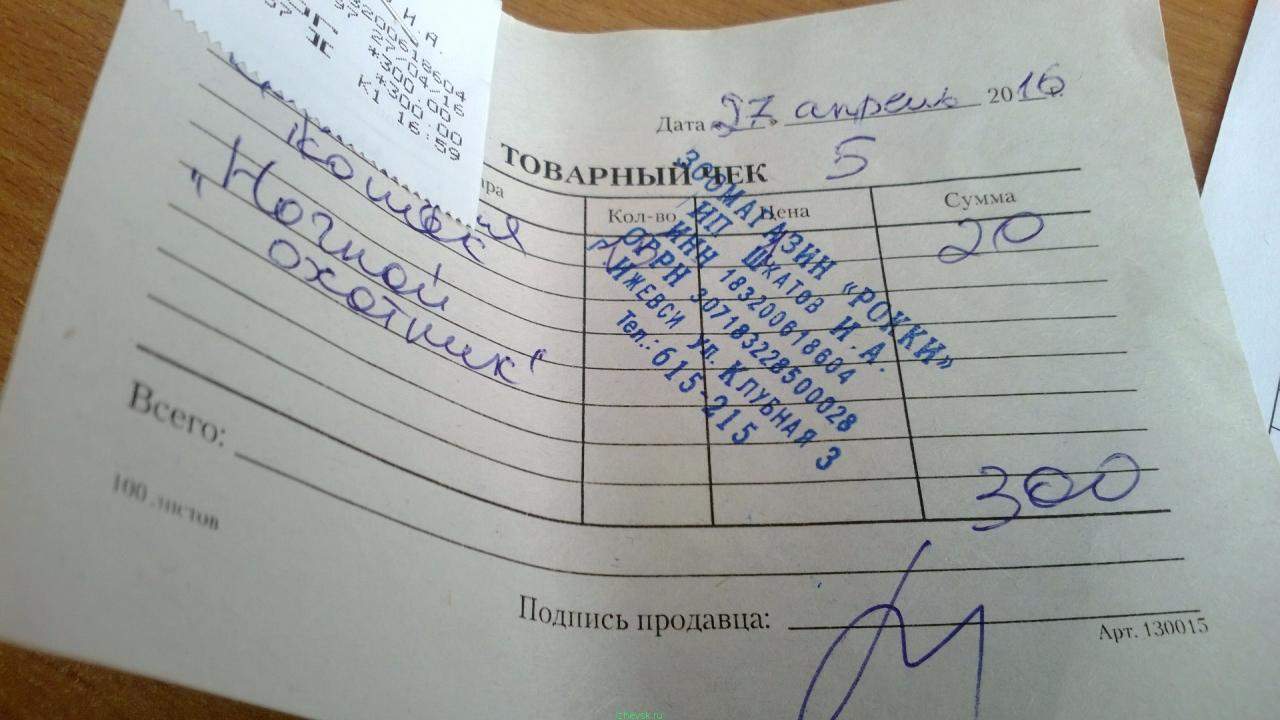 И.А.
320618604
27/04/16
*300.00
*300.00
К1 16:59
Дата 27 апрель 2016
ТОВАРНЫЙ ЧЕК 5
Кол-во Цена Сумма
20
кошек
"Ночной
охотник"
ЗООМАГАЗИН «РОККИ»
ИП Шкатов И.А.
ИНН 183200618604
ОГРН 307183228500028
Г.ИЖЕВСК ул. Клубная 3
Тел.: 615-215
300
Всего:
100 листов
Подпись продавца:
Арт. 130015
izhevsk.ru